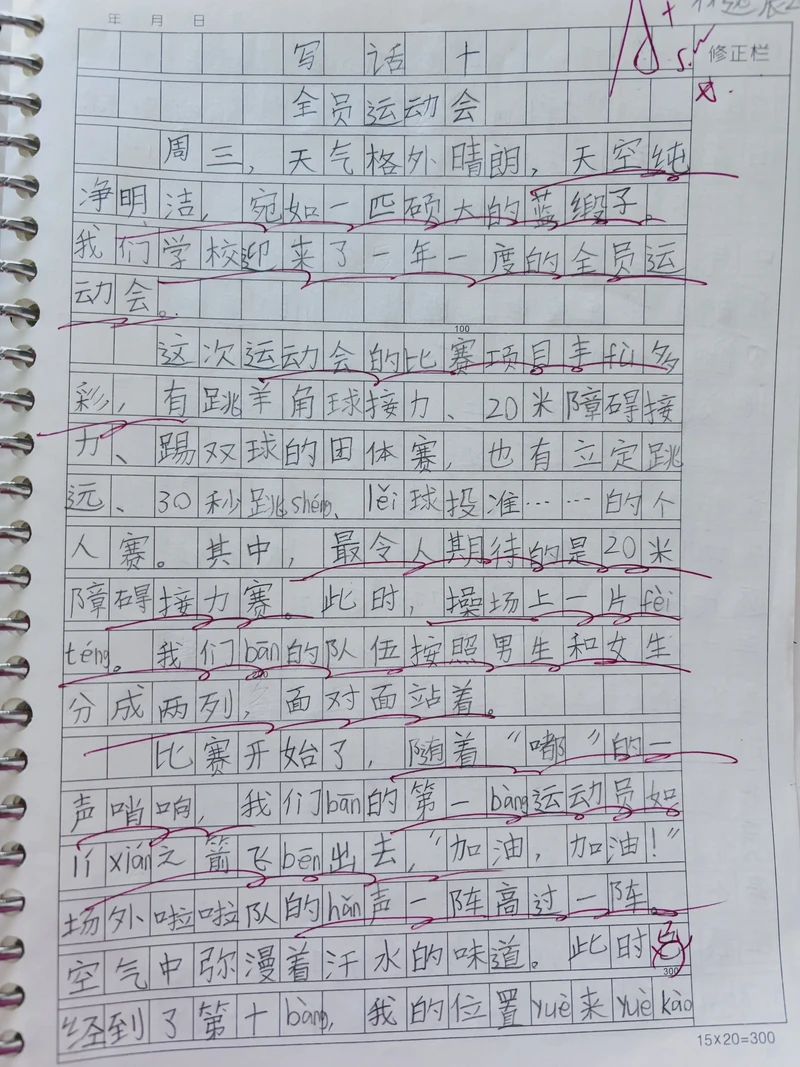 年 月 日
修正栏
写话十
全员运动会
周三，天气格外晴朗，天空纯
净明洁，宛如一匹硕大的蓝缎子。
我们学校迎来了一年一度的全员运
动会。
100
这次运动会的比赛项目丰fù多
彩，有跳羊角球接力、20米障碍接
力、踢双球的团体赛，也有立定跳
远、30秒跳shéng、lěi球投准……的个
人赛。其中，最令人期待的是20米
障碍接力赛。此时，操场上一片fèi
téng。我们bān的队伍按照男生和女生
分成两列，面对面站着。
比赛开始了，随着“嘟”的一
声哨响，我们bān的第一bàng运动员如
lí xián之箭飞bēn出去，“加油，加油！”
场外啦啦队的hǎn声一阵高过一阵。
空气中弥漫着汗水的味道。此时
300
经到了第十bàng，我的位置yuè来yuè kào
15×20=300